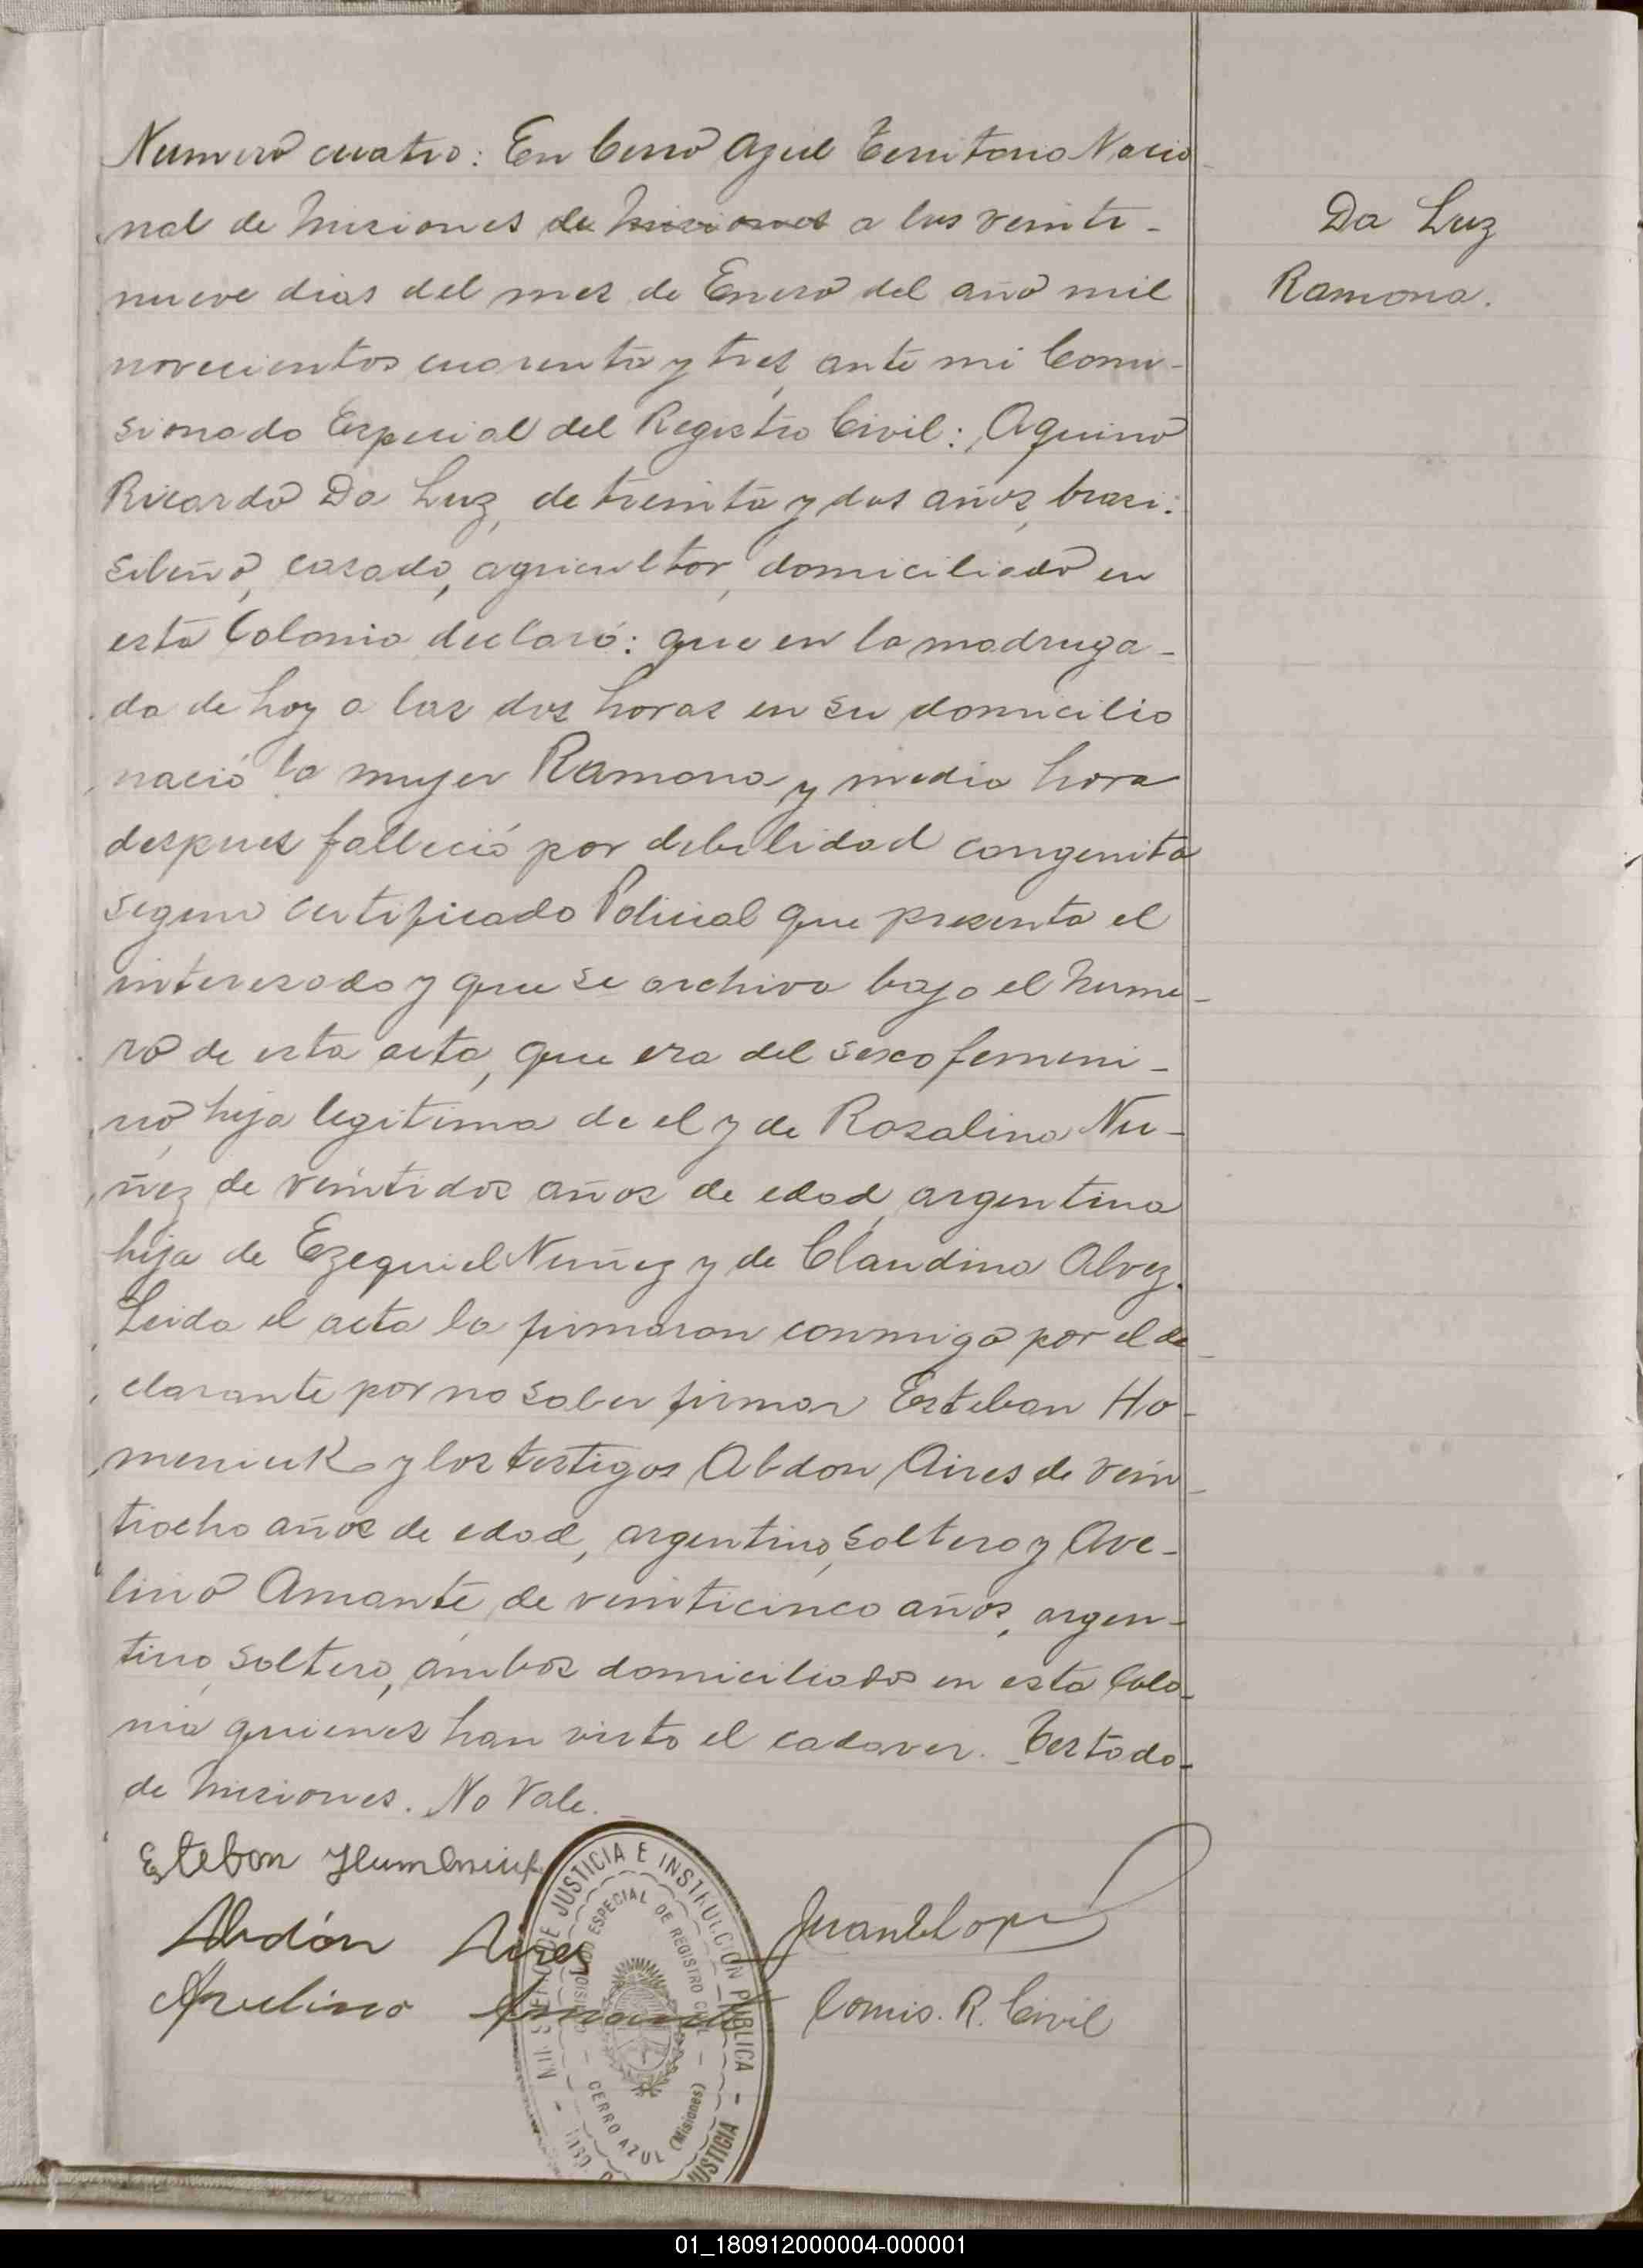 Numero cuatro: En Cerro Azul Territorio Nacio
nal de Misiones de Misiones a los veinti-
nueve dias del mes de Enero del año mil
novecientos cuarenta y tres, ante mi Comi-
sionado Especial del Registro Civil: Aquino
Ricardo Da Luz, de treinta y dos años, brasi:
sileño, casado, agricultor, domiciliado en
esta Colonia declaró: que en la madruga-
da de hoy a las dos horas en su domicilio
nació la mujer Ramona y media hora
despues falleció por debilidad congenita
segun certificado Policial que presenta el
interesado y que se archiva bajo el nume-
ro de esta acta, que era del sexo femeni-
no, hija legitima de el y de Rosalina Nu-
ñez de veintidos años de edad, argentina
hija de Ezequiel Nuñez y de Claudina Alvez.
Leida el acta la firmaron conmigo por el de-
clarante por no saber firmar Esteban Ho-
meniuk y los testigos Abdon Aires de vein-
tiocho años de edad, argentino, soltero y Ave-
lino Amante, de veinticinco años, argen-
tino, soltero, ambos domiciliados en esta Colo-
nia quienes han visto el cadaver. Testado-
de Misiones. No Vale.
Da Luz
Ramona.
Esteban
Abdón Aires
Avelino Amante
Juan López
Comis. R. Civil
JUSTICIA E INSTRUCCIÓN PUBLICA
ESPECIAL DE REGISTRO CIVIL
CERRO AZUL
(Misiones)
JUSTICIA
01_180912000004-000001